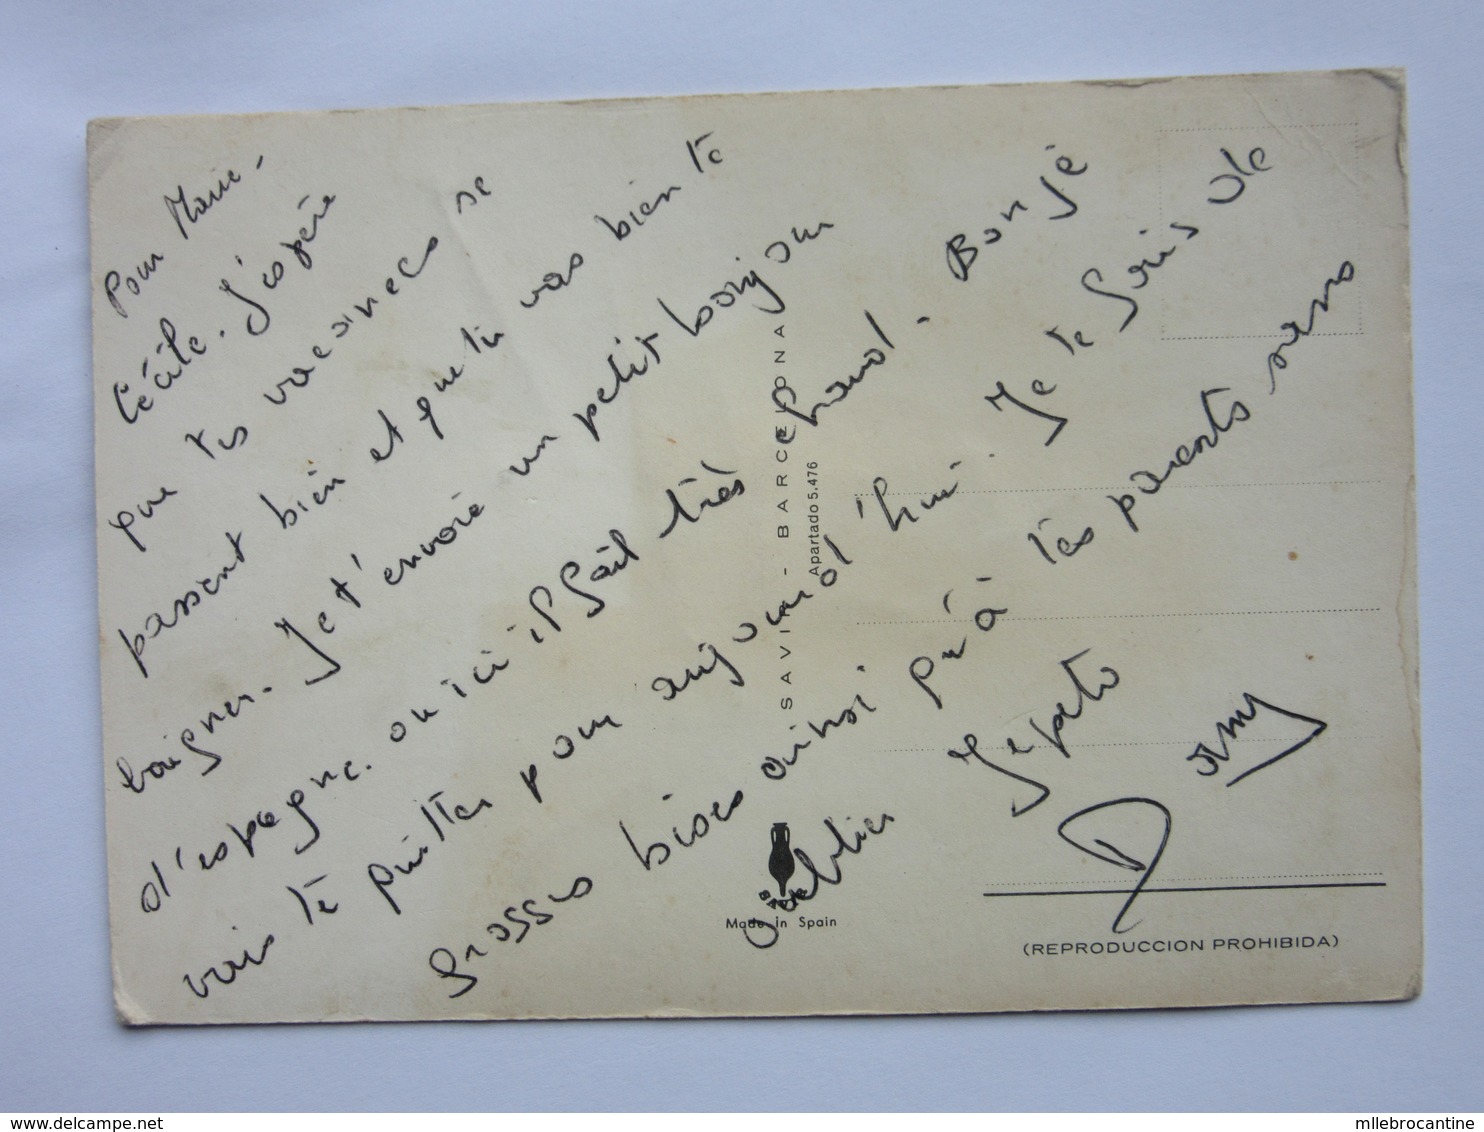 Pour Marie-
Cécile. J'espère
que tes vacances se
passent bien et que tu vas bien te
baigner. Je t'envoie un petit bonjour
d'espagne. ou ici il fait très chaud. Bon jé
vais te quitter pour aujourd'hui. Je te fais de
grosses bises ainsi qu'à tes parents sans
oublier Jepeto
Dany
SAVIR - BARCELONA
Apartado 5.476
SAVIR
Made in Spain
(REPRODUCCION PROHIBIDA)
https://www.delcampe.net
mllebrocantine